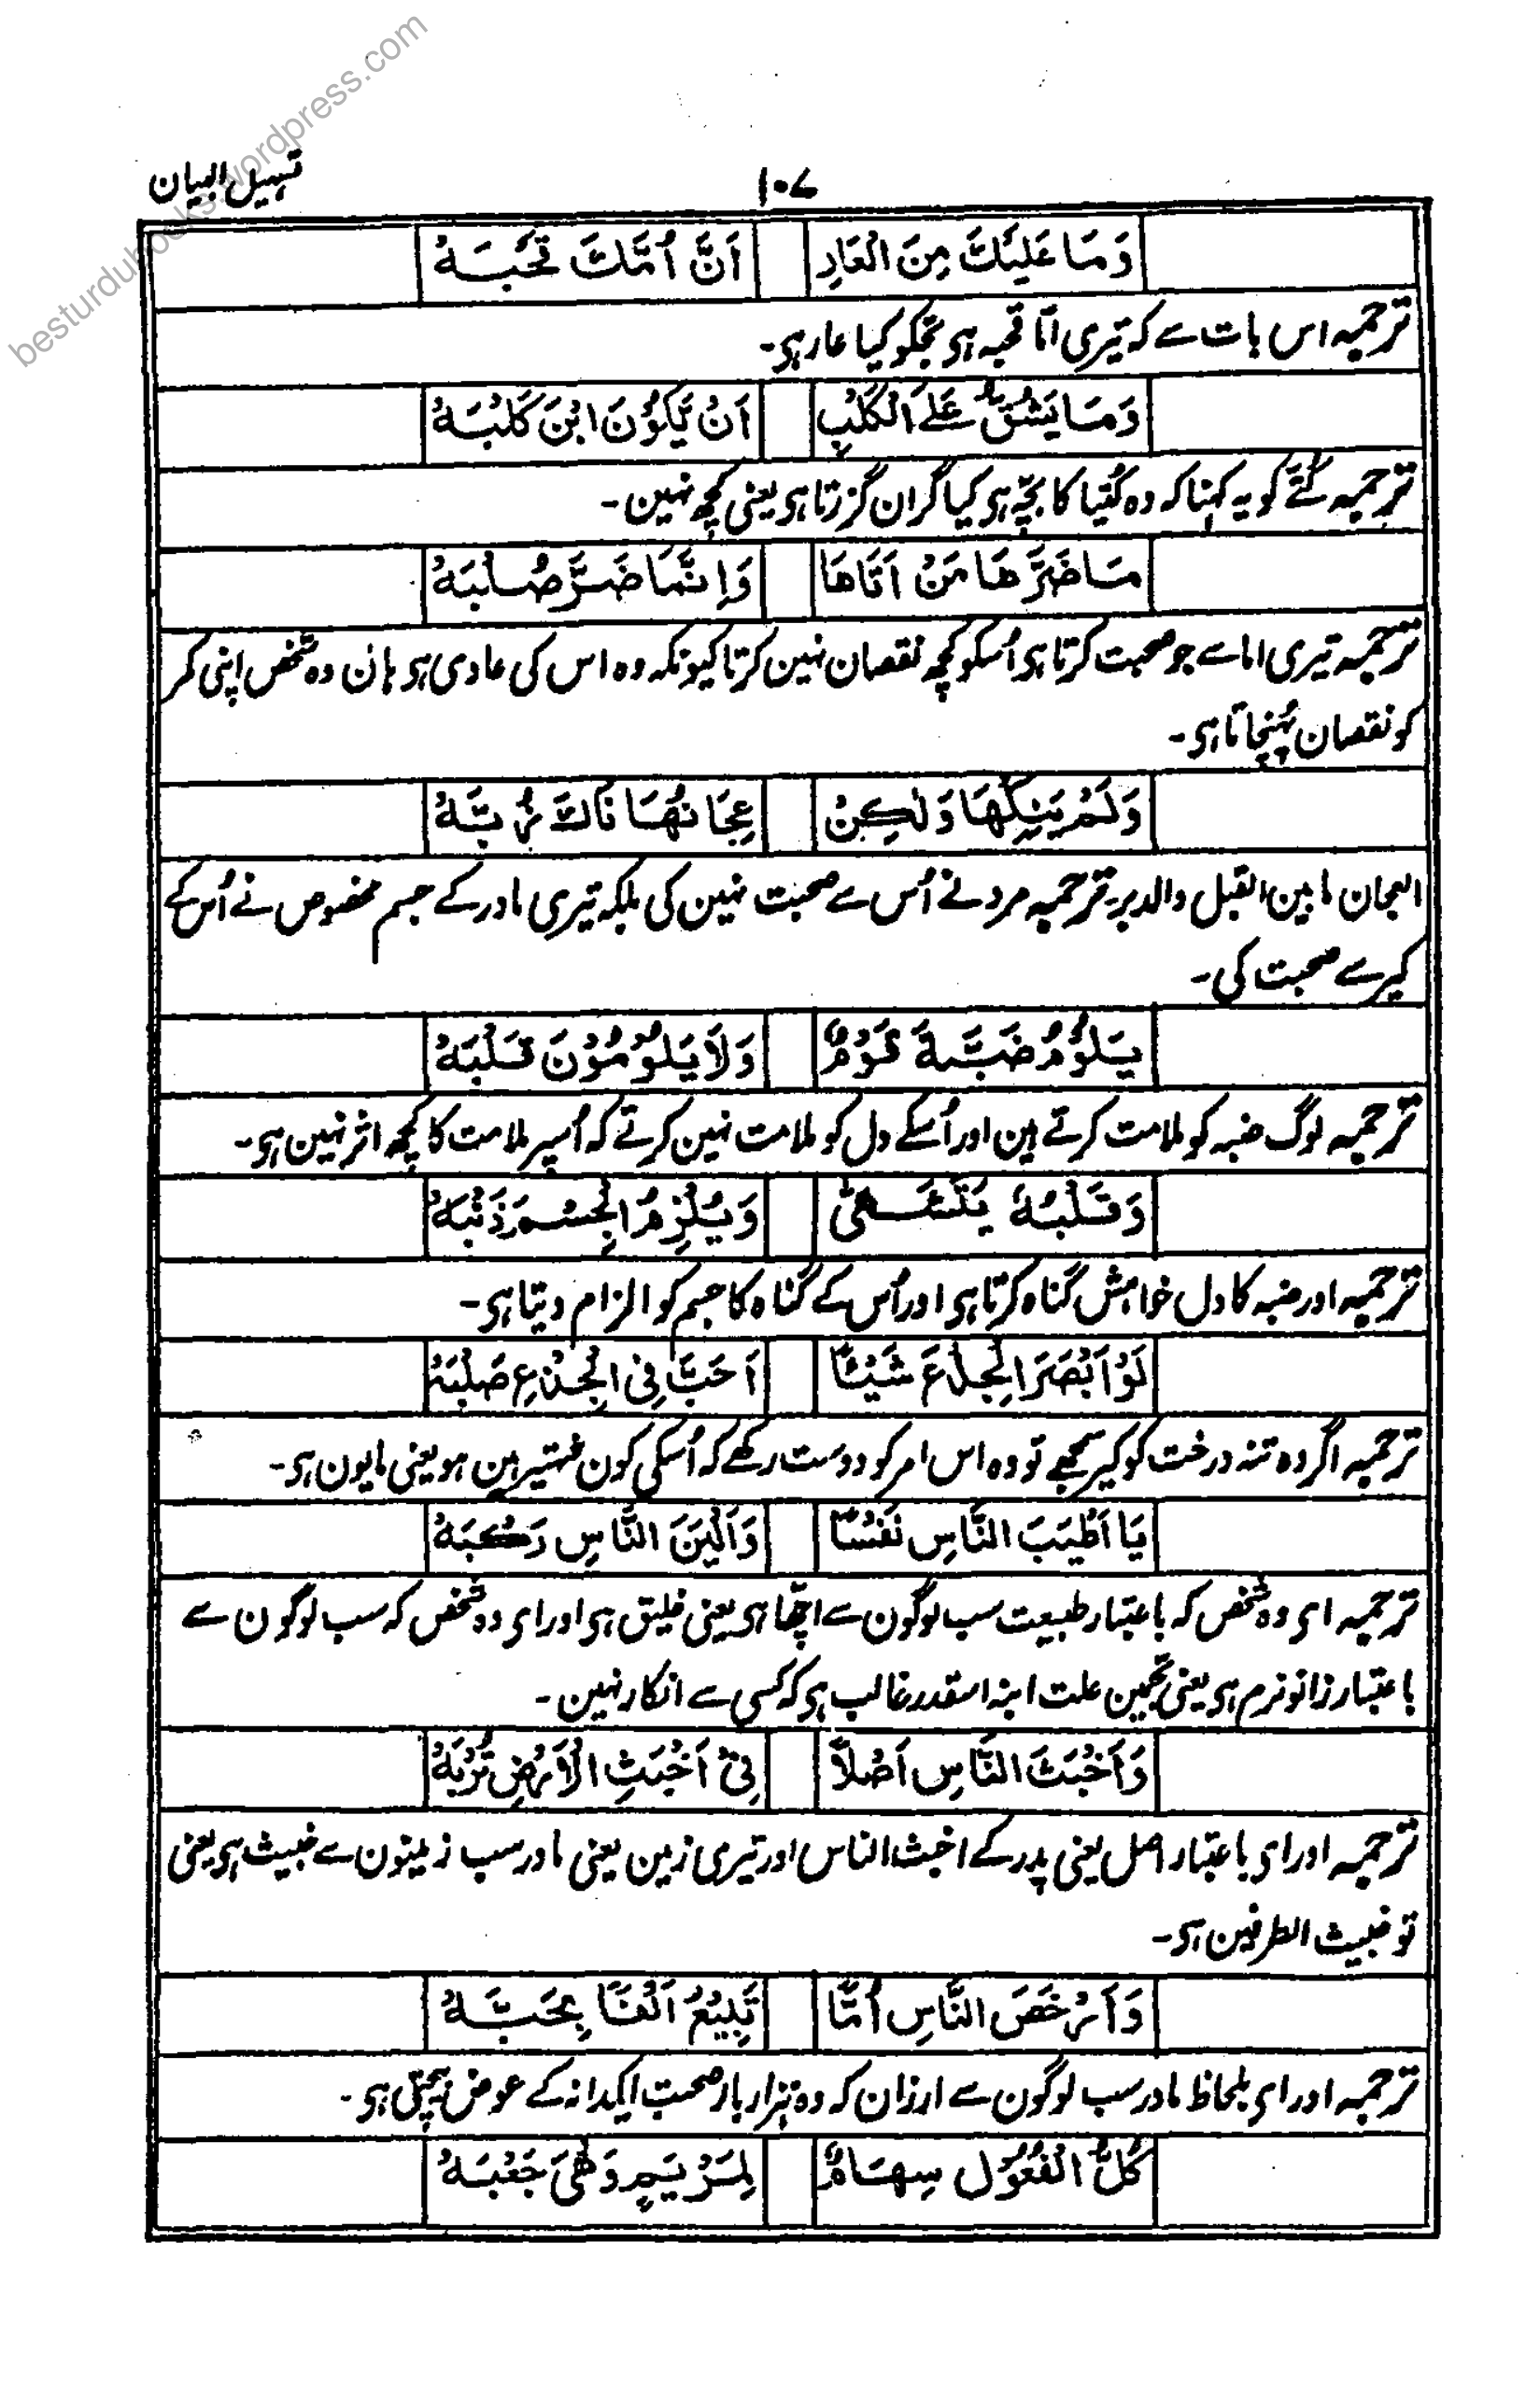 besturdubooks.wordpress.com
تسہیل البیان
۱۰۷
وَمَا عَلَيْكَ مِنَ الْعَارِ اَنَّ اُمَّكَ قَحْبَهْ
ترجمہ اس بات سے کہ تیری امّا قحبہ ہی تجکو کیا عار ہی۔
وَمَا يَشُقُّ عَلَى الْكَلْبِ اَنْ يَّكُوْنَ ابْنَ كَلْبَهْ
ترجمہ کتّے کو یہ کہنا کہ وہ کتیا کا بچّہ ہی کیا گران گزرتا ہی یعنی کچھ نہین۔
مَا ضَرَّهَا مَنْ اَتَاهَا وَاِنَّمَا ضَرَّ صُلْبَهْ
ترجمہ تیری اما سے جو صحبت کرتا ہی اُسکو کچھ نقصان نہین کرتا کیونکہ وہ اس کی عادی ہی ہان وہ شخص اپنی کمر
کو نقصان پُہنچاتا ہی۔
وَلَمْ يَنِكْهَا وَلٰكِنْ عِجَانُهَا نَاكَ زُبَّهْ
العجان ما بین القبل والدبر ترجمہ مرد نے اُس سے صحبت نہین کی بلکہ تیری مادر کے جسم مخصوص نے اُس کے
کیر سے صحبت کی۔
يَلُوْمُ ضَبَّةَ قَوْمٌ وَلَا يَلُوْمُوْنَ قَلْبَهْ
ترجمہ لوگ ضبہ کو ملامت کرتے ہین اور اُسکے دل کو ملامت نہین کرتے کہ اُسپر ملامت کا کچھ اثر نہین ہی۔
وَقَلْبُهٗ يَتَشَهّٰى وَيُلْزِمُ الْجِسْمَ ذَنْبَهْ
ترجمہ اور ضبہ کا دل خواہش گناہ کرتا ہی اور اُس کے گناہ کا جسم کو الزام دیتا ہی۔
لَوْ اَبْصَرَ الْجِذْعَ شَيْئًا اَحَبَّ فِى الْجِذْعِ صَلْبَهْ
ترجمہ اگر وہ تنہ درخت کو کیر سمجھے تو وہ اس امر کو دوست رکھے کہ اُسکی کون شہتیر مین ہو یعنی مابون ہی۔
يَا اَطْيَبَ النَّاسِ نَفْسًا وَاَلْيَنَ النَّاسِ رُكْبَهْ
ترجمہ ای وہ شخص کہ باعتبار طبیعت سب لوگون سے اچّھا ہی یعنی خلیق ہی اور ای وہ شخص کہ سب لوگون سے
باعتبار زانو نرم ہی یعنی تجمین علت ابنہ اسقدر غالب ہی کہ کسی سے انکار نہین۔
وَاَخْبَثَ النَّاسِ اَصْلًا فِىْ اَخْبَثِ الْاَرْضِ تُرْبَهْ
ترجمہ اور ای باعتبار اصل یعنی پدر کے اخبث الناس اور تیری زمین یعنی مادر سب زمینون سے خبیث ہی یعنی
تو خبیث الطرفین ہی۔
وَاَرْخَصَ النَّاسِ اُمًّا تَبِيْعُ اَلْفًا بِحَبَّهْ
ترجمہ اور ای بلحاظ مادر سب لوگون سے ارزان کہ وہ ہزار بار صحبت ایکدانہ کے عوض بیچتی ہی۔
كُلُّ الْفُعُوْلِ سِهَامٌ لِمَرْيَمٍ وَهْىَ جَعْبَهْ